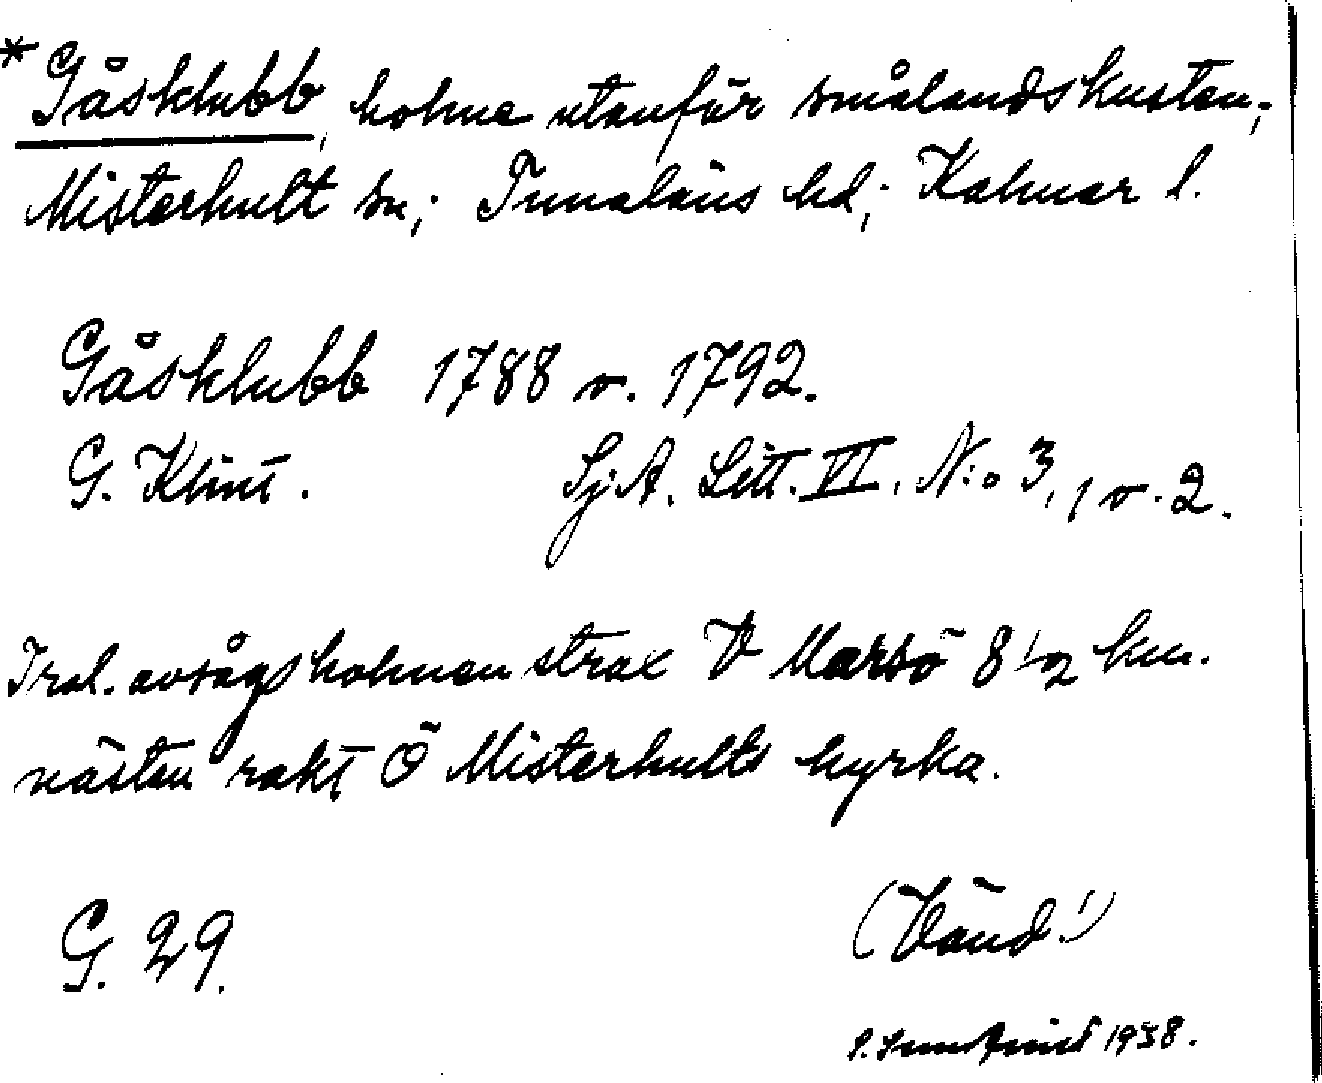 * Gåsklubb, holme utanför smålandskusten;
Misterhult sn; Tunaläns hd; Kalmar l.
Gåsklubb 1788 o. 1792.
G. Klint. Sj. A. Litt. VI. N:o 3, 1 o. 2.
Trol. avsågs holmen strax V Marsö 8 1/2 km.
nästan rakt Ö Misterhults kyrka.
G. 29.
(Vänd!)
1938.